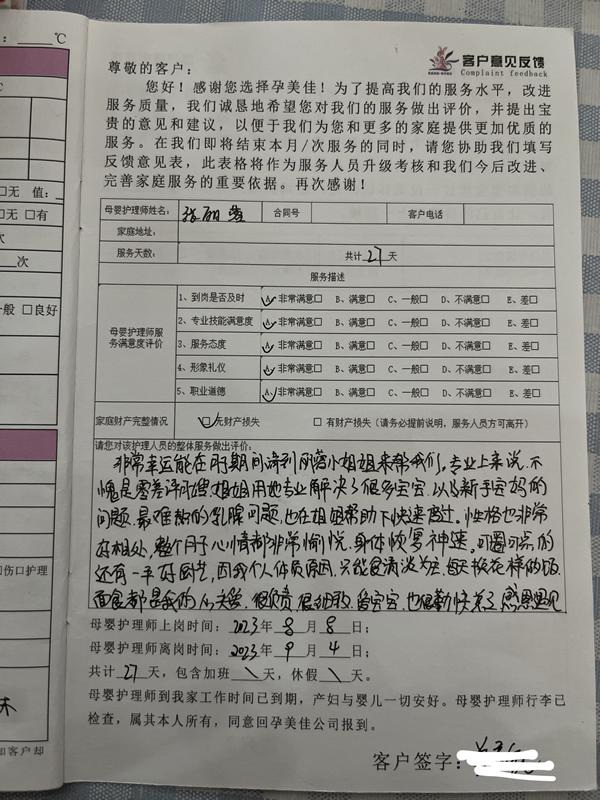 ：____℃
客户意见反馈
Complaint feedback
尊敬的客户：
您好！感谢您选择孕美佳！为了提高我们的服务水平，改进
服务质量，我们诚恳地希望您对我们的服务做出评价，并提出宝
贵的意见和建议，以便于我们为您和更多的家庭提供更加优质的
服务。在我们即将结束本月/次服务的同时，请您协助我们填写
反馈意见表，此表格将作为服务人员升级考核和我们今后改进、
完善家庭服务的重要依据。再次感谢！
□无 值：
□无 □有
次
次
般 □良好
伤口护理
如客户却
母婴护理师姓名： 张丽 合同号 客户电话
家庭地址：
服务天数： 共计 27 天
服务描述
母婴护理师服
务满意度评价
1、到岗是否及时 A、非常满意□ B、满意□ C、一般□ D、不满意□ E、差□
2、专业技能满意度 A、非常满意□ B、满意□ C、一般□ D、不满意□ E、差□
3、服务态度 A、非常满意□ B、满意□ C、一般□ D、不满意□ E、差□
4、形象礼仪 A、非常满意□ B、满意□ C、一般□ D、不满意□ E、差□
5、职业道德 A、非常满意□ B、满意□ C、一般□ D、不满意□ E、差□
家庭财产完整情况 无财产损失 □ 有财产损失（请务必提前说明，服务人员方可离开）
请您对该护理人员的整体服务做出评价：
非常幸运能在 期间请到 小姐姐来帮我们。专业上来说，不
愧是零差评 ，姐姐用她专业解决了很多宝宝，以及新手宝妈的
问题，最难熬的乳腺问题，也在姐姐帮助下快速度过。性格也非常
好相处，整个月子心情都非常愉悦，身体恢复神速。可圈可点的
还有一手好厨艺，因我个人体质原因，只能食清淡 ，每天换花样做饭，
面食都是我的 ，很负责，很细致，爱宝宝，也很勤快
母婴护理师上岗时间：2023年 8 月 8 日；
母婴护理师离岗时间：2023年 9 月 4 日；
共计 27 天，包含加班 \ 天，休假 \ 天。
母婴护理师到我家工作时间已到期，产妇与婴儿一切安好。母婴护理师行李已
检查，属其本人所有，同意回孕美佳公司报到。
客户签字：